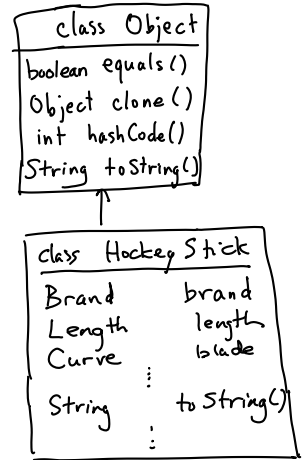 class Object
boolean equals()
Object clone()
int hashCode()
String toString()
class HockeyStick
Brand brand
Length length
Curve blade
String toString()